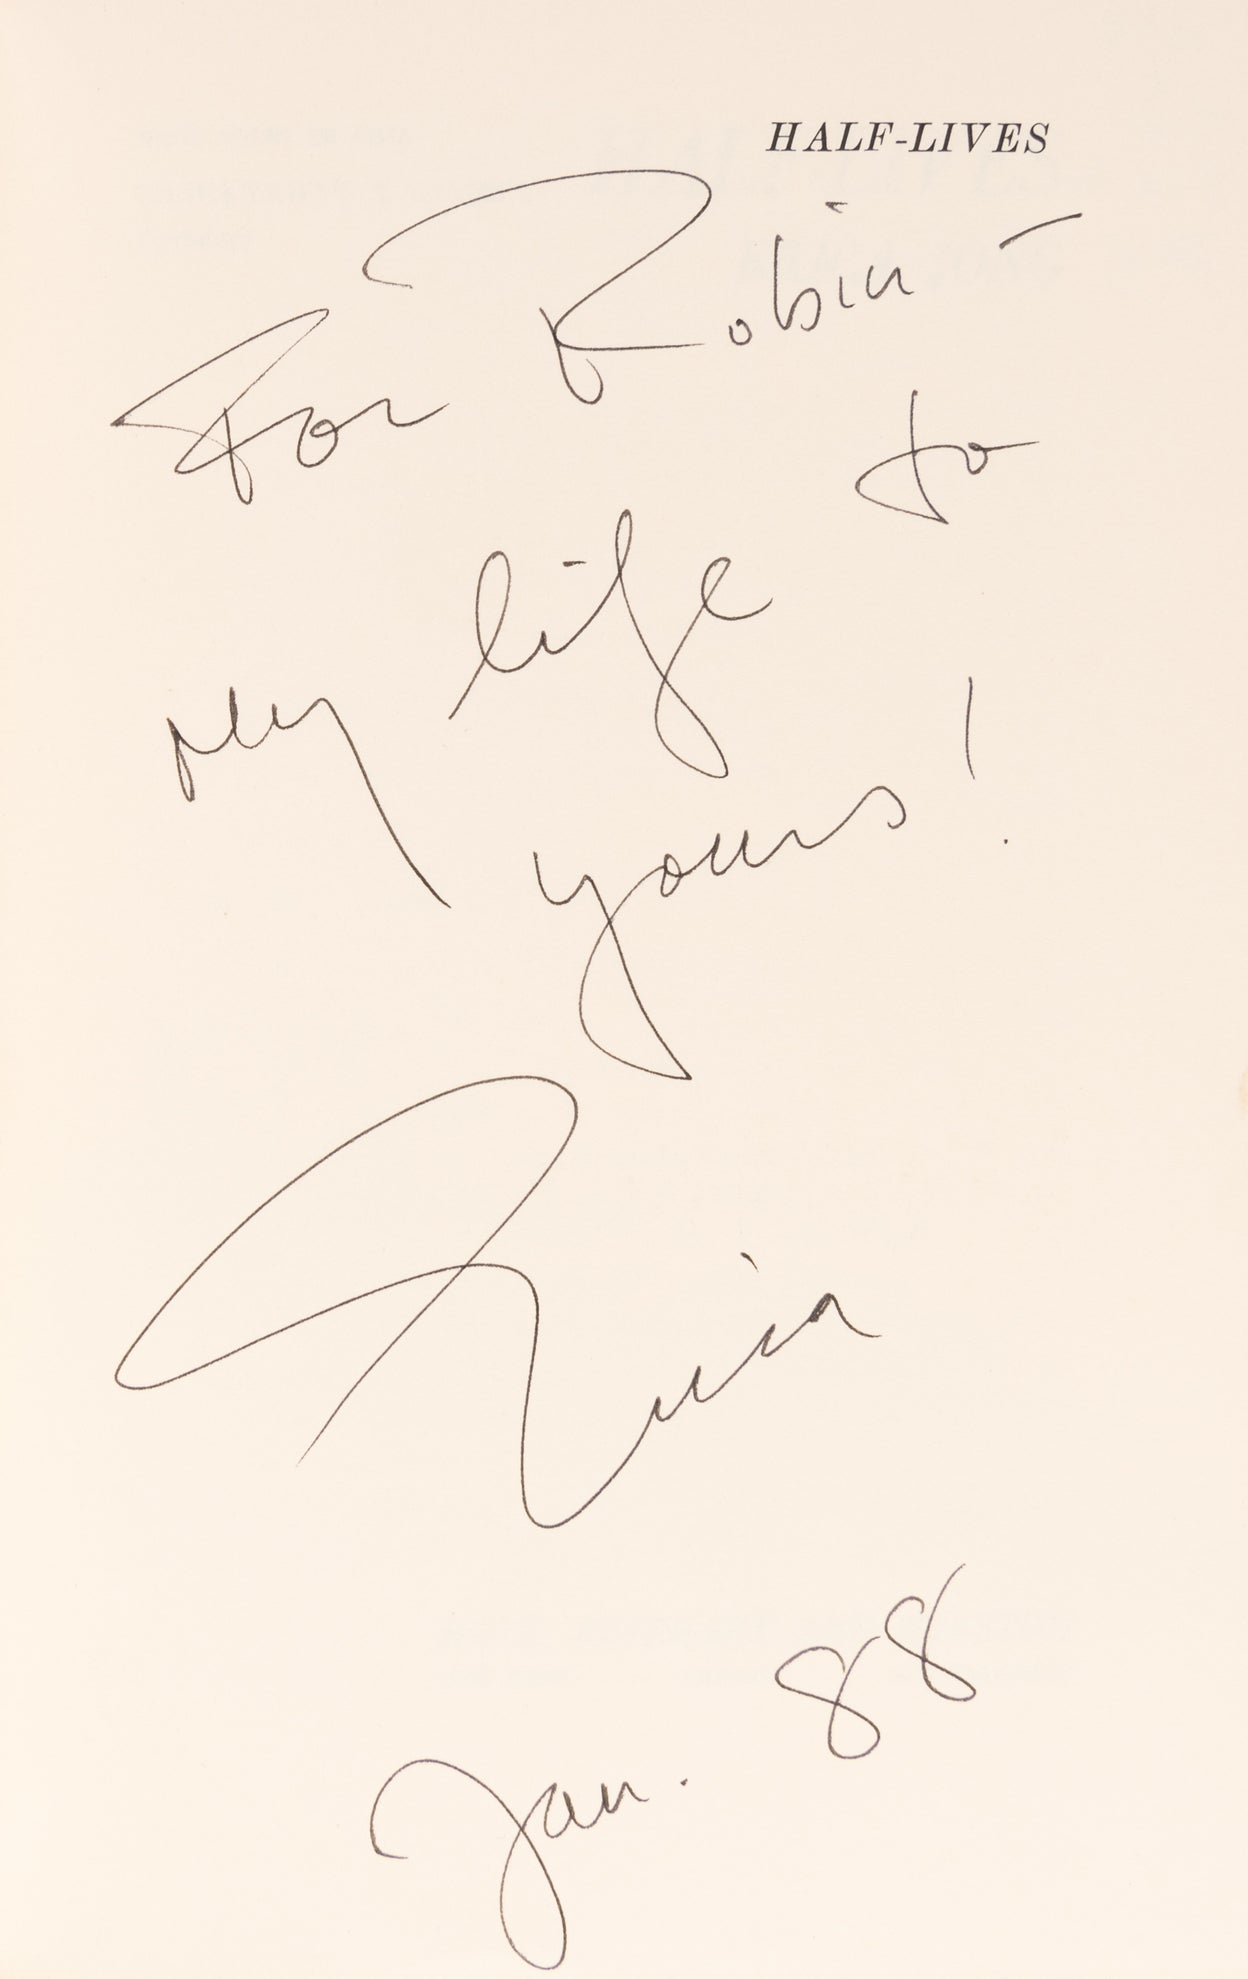 HALF-LIVES
For Robin —
My life to
yours!
Erica
Jan. 88